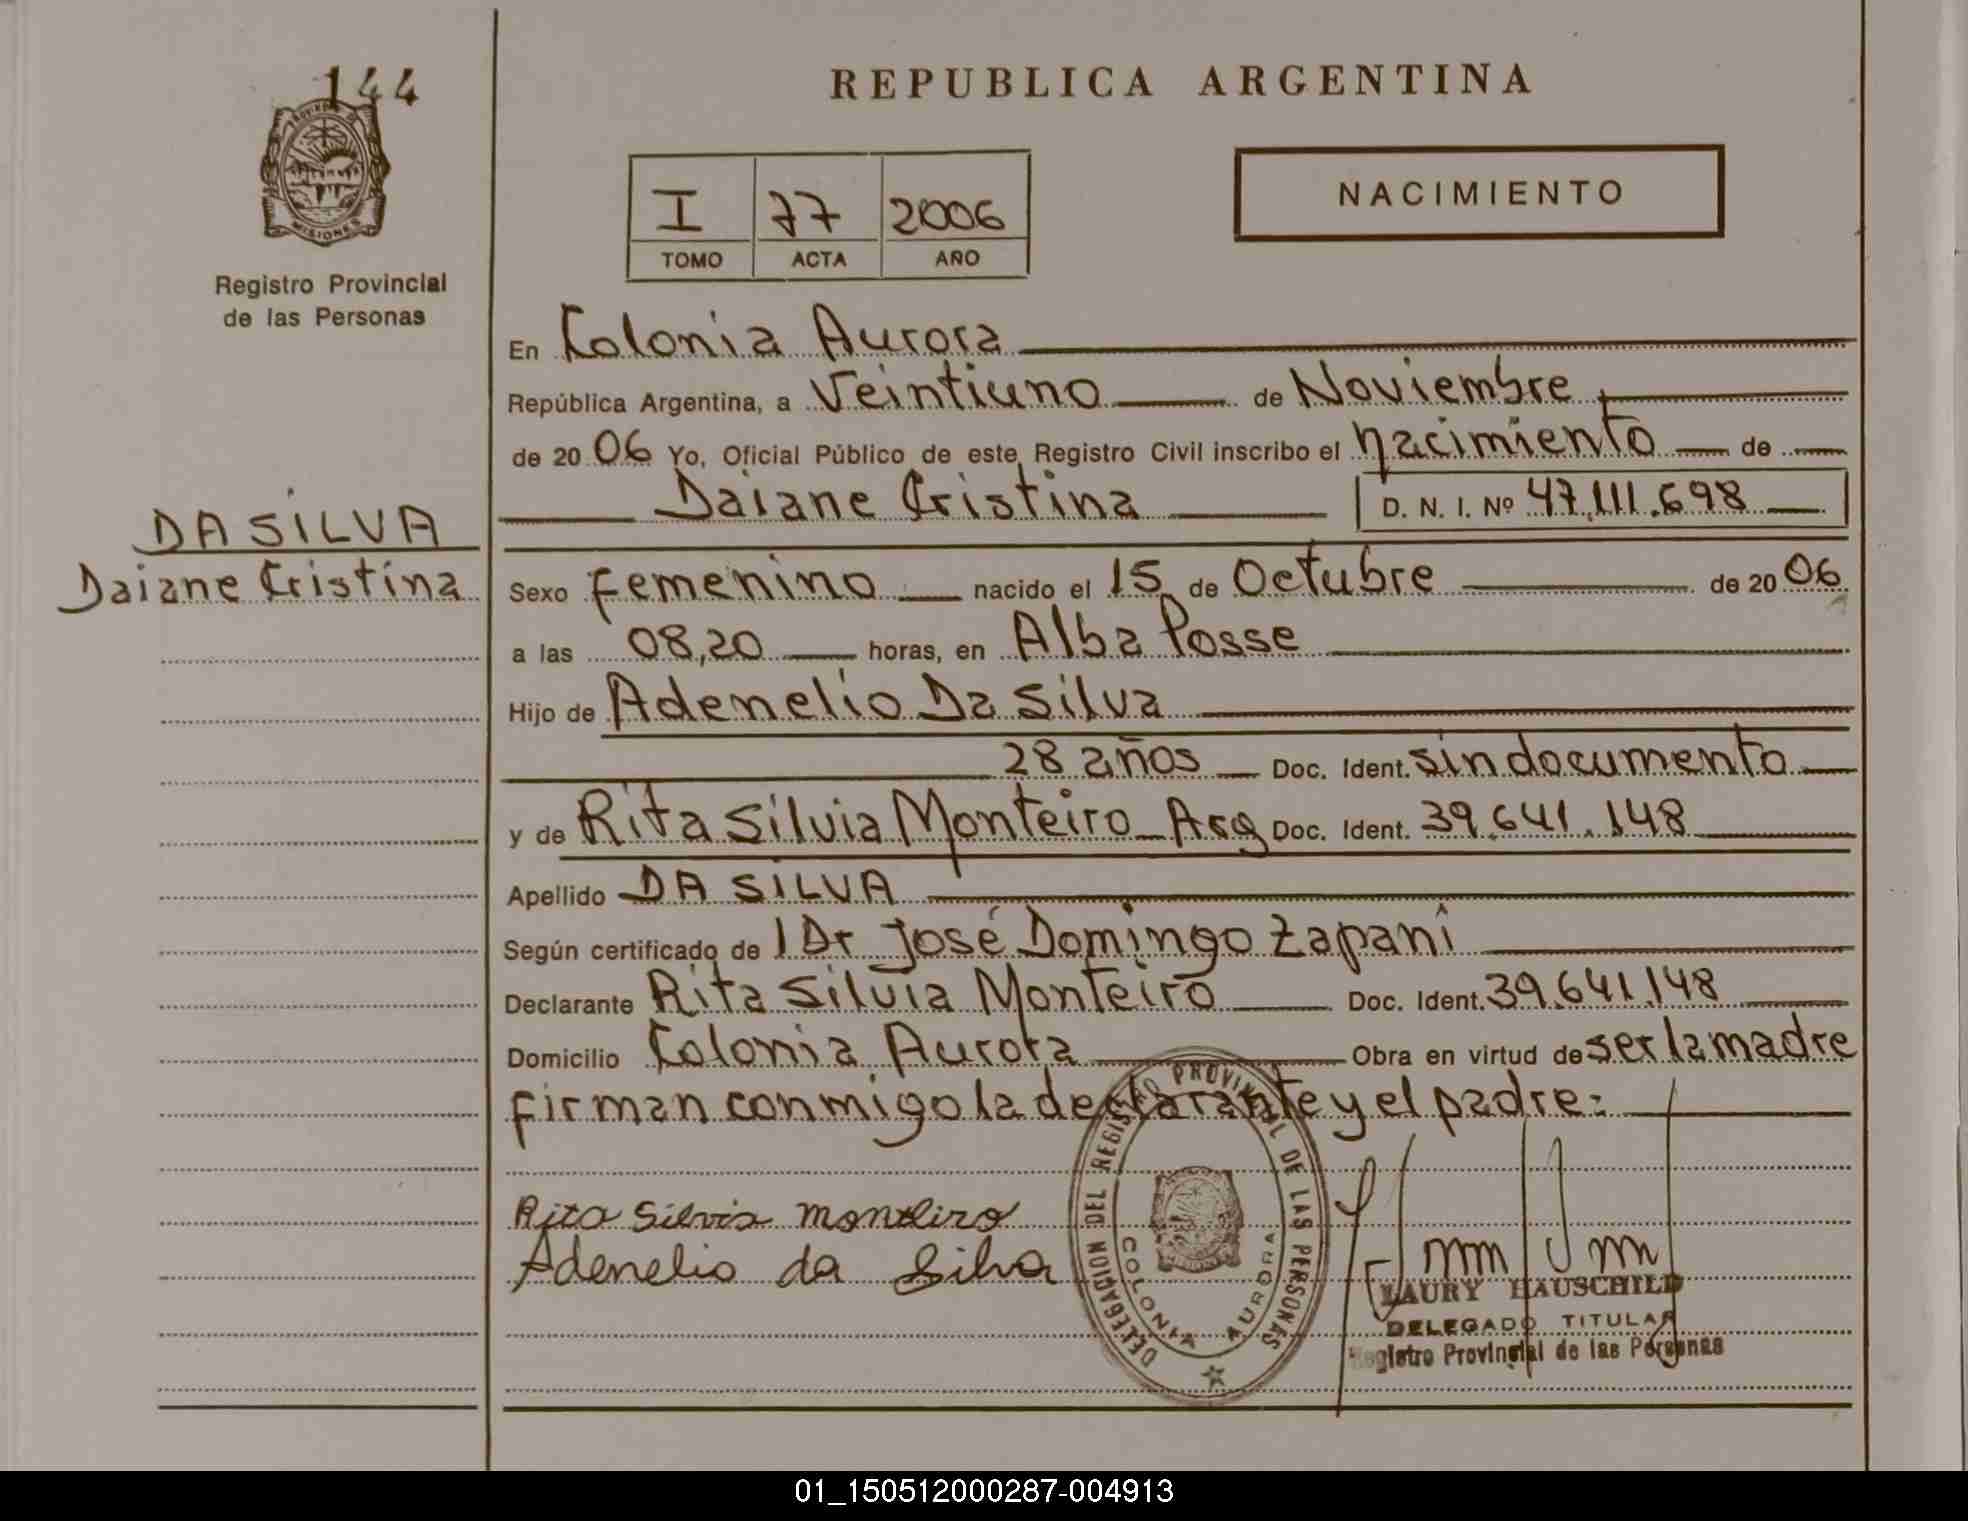 144
REPUBLICA ARGENTINA
PROVINCIA DE
MISIONES
Registro Provincial
de las Personas
I 77 2006
TOMO ACTA AÑO
NACIMIENTO
En Colonia Aurora
República Argentina, a Veintiuno de Noviembre
de 20 06 Yo, Oficial Público de este Registro Civil inscribo el nacimiento de
Daiane Cristina D. N. I. Nº 47.111.698
DA SILVA
Daiane Cristina
Sexo femenino nacido el 15 de Octubre de 20 06
a las 08,20 horas, en Alba Posse
Hijo de Adenelio Da Silva
28 años Doc. Ident. sin documento
y de Rita Silvia Monteiro Arg Doc. Ident. 39.641.148
Apellido DA SILVA
Según certificado de l Dr José Domingo Zapani
Declarante Rita Silvia Monteiro Doc. Ident. 39.641.148
Domicilio Colonia Aurora Obra en virtud de ser la madre
firman conmigo la declarante y el padre:
Rita Silvia monteiro
Adenelio da Silva
DELEGACION DEL REGISTRO PROVINCIAL DE LAS PERSONAS
COLONIA AURORA
LAURY HAUSCHILD
DELEGADO TITULAR
Registro Provincial de las Personas
01_150512000287-004913